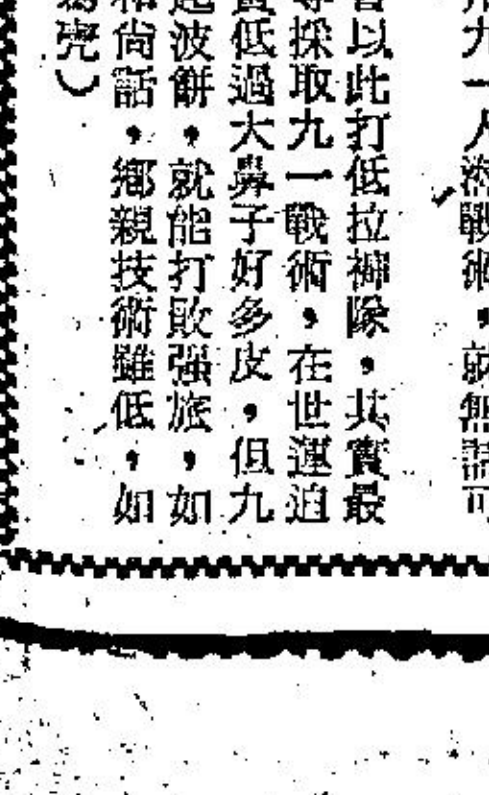 九一人海戰術，就無話可
以此打低拉褲隊，其實最
採取九一戰術，在世運迫
低過大鼻子好多皮，但九
波餅，就能打敗强旅，如
和尚話，鄉親技術雖低，如
堯）